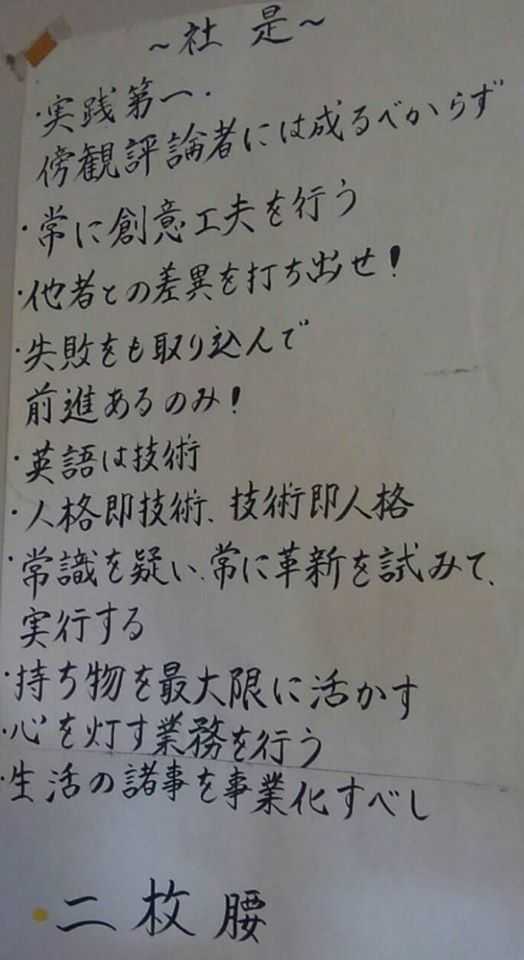 ～社是～
・実践第一．
傍観評論者には成るべからず
・常に創意工夫を行う
・他者との差異を打ち出せ！
・失敗をも取り込んで
前進あるのみ！
・英語は技術
・人格即技術、技術即人格
・常識を疑い、常に革新を試みて、
実行する
・持ち物を最大限に活かす
・心を灯す業務を行う
・生活の諸事を事業化すべし
・二枚腰